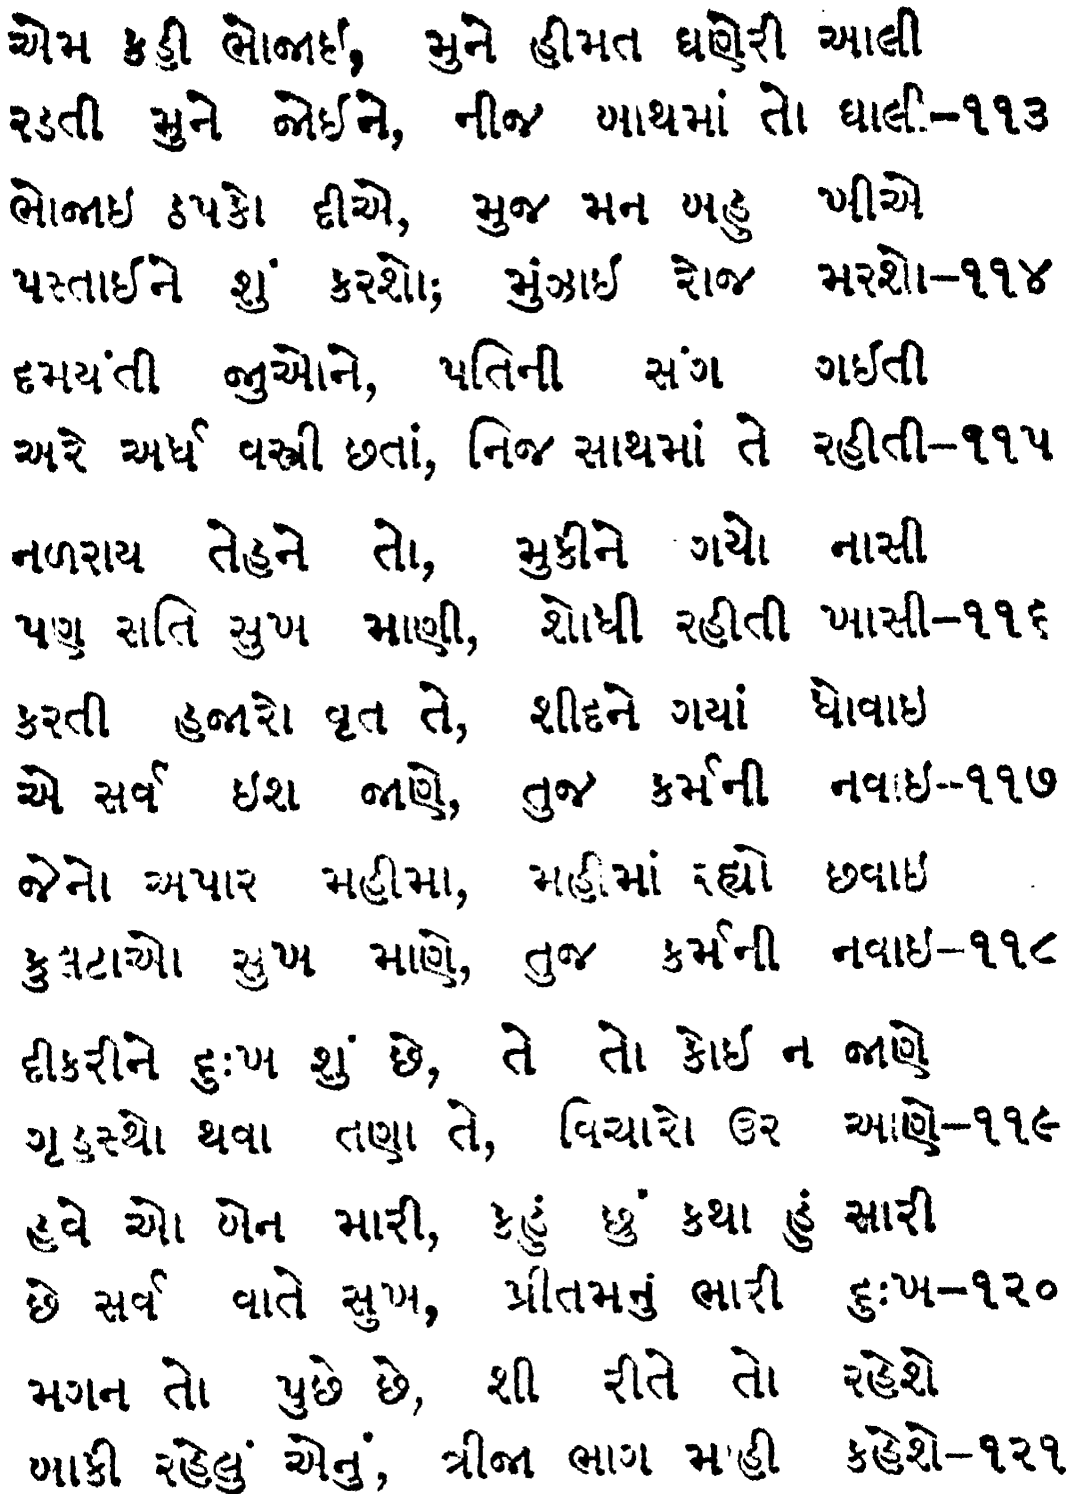 એમ કહી ભોજાઈ, મુને હીમત ઘણેરી આલી
રડતી મુને જોઈને, નીજ બાથમાં તો ઘાલી–૧૧૩
ભોજાઇ ઠપકો દીએ, મુજ મન બહુ ખીએ
પસ્તાઈને શું કરશો; મુંઝાઇ રોજ મરશો–૧૧૪
દમયંતી જુઓને, પતિની સંગ ગઈતી
અરે અર્ધ વસ્ત્રી છતાં, નિજ સાથમાં તે રહીતી–૧૧૫
નળરાય તેહને તો, મુકીને ગયો નાસી
પણ રાતિ સુખ માણી, શોધી રહીતી ખાસી–૧૧૬
કરતી હજારો વૃત તે, શીદને ગયાં ધોવાઇ
એ સર્વ ઇશ જાણે, તુજ કર્મની નવાઇ–૧૧૭
જેનો અપાર મહીમા, મહીમાં રહ્યો છવાઇ
કુલટાઓ સુખ માણે, તુજ કર્મની નવાઇ–૧૧૮
દીકરીને દુઃખ શું છે, તે તો કોઈ ન જાણે
ગૃહસ્થો થવા તણા તે, વિચારો ઉર આણે–૧૧૯
હવે ઓ બેન મારી, કહું છું કથા હું સારી
છે સર્વ વાતે સુખ, પ્રીતમનું ભારી દુઃખ–૧૨૦
મગન તો પુછે છે, શી રીતે તો રહેશે
બાકી રહેલું એનું, ત્રીજા ભાગ માંહી કહેશે–૧૨૧